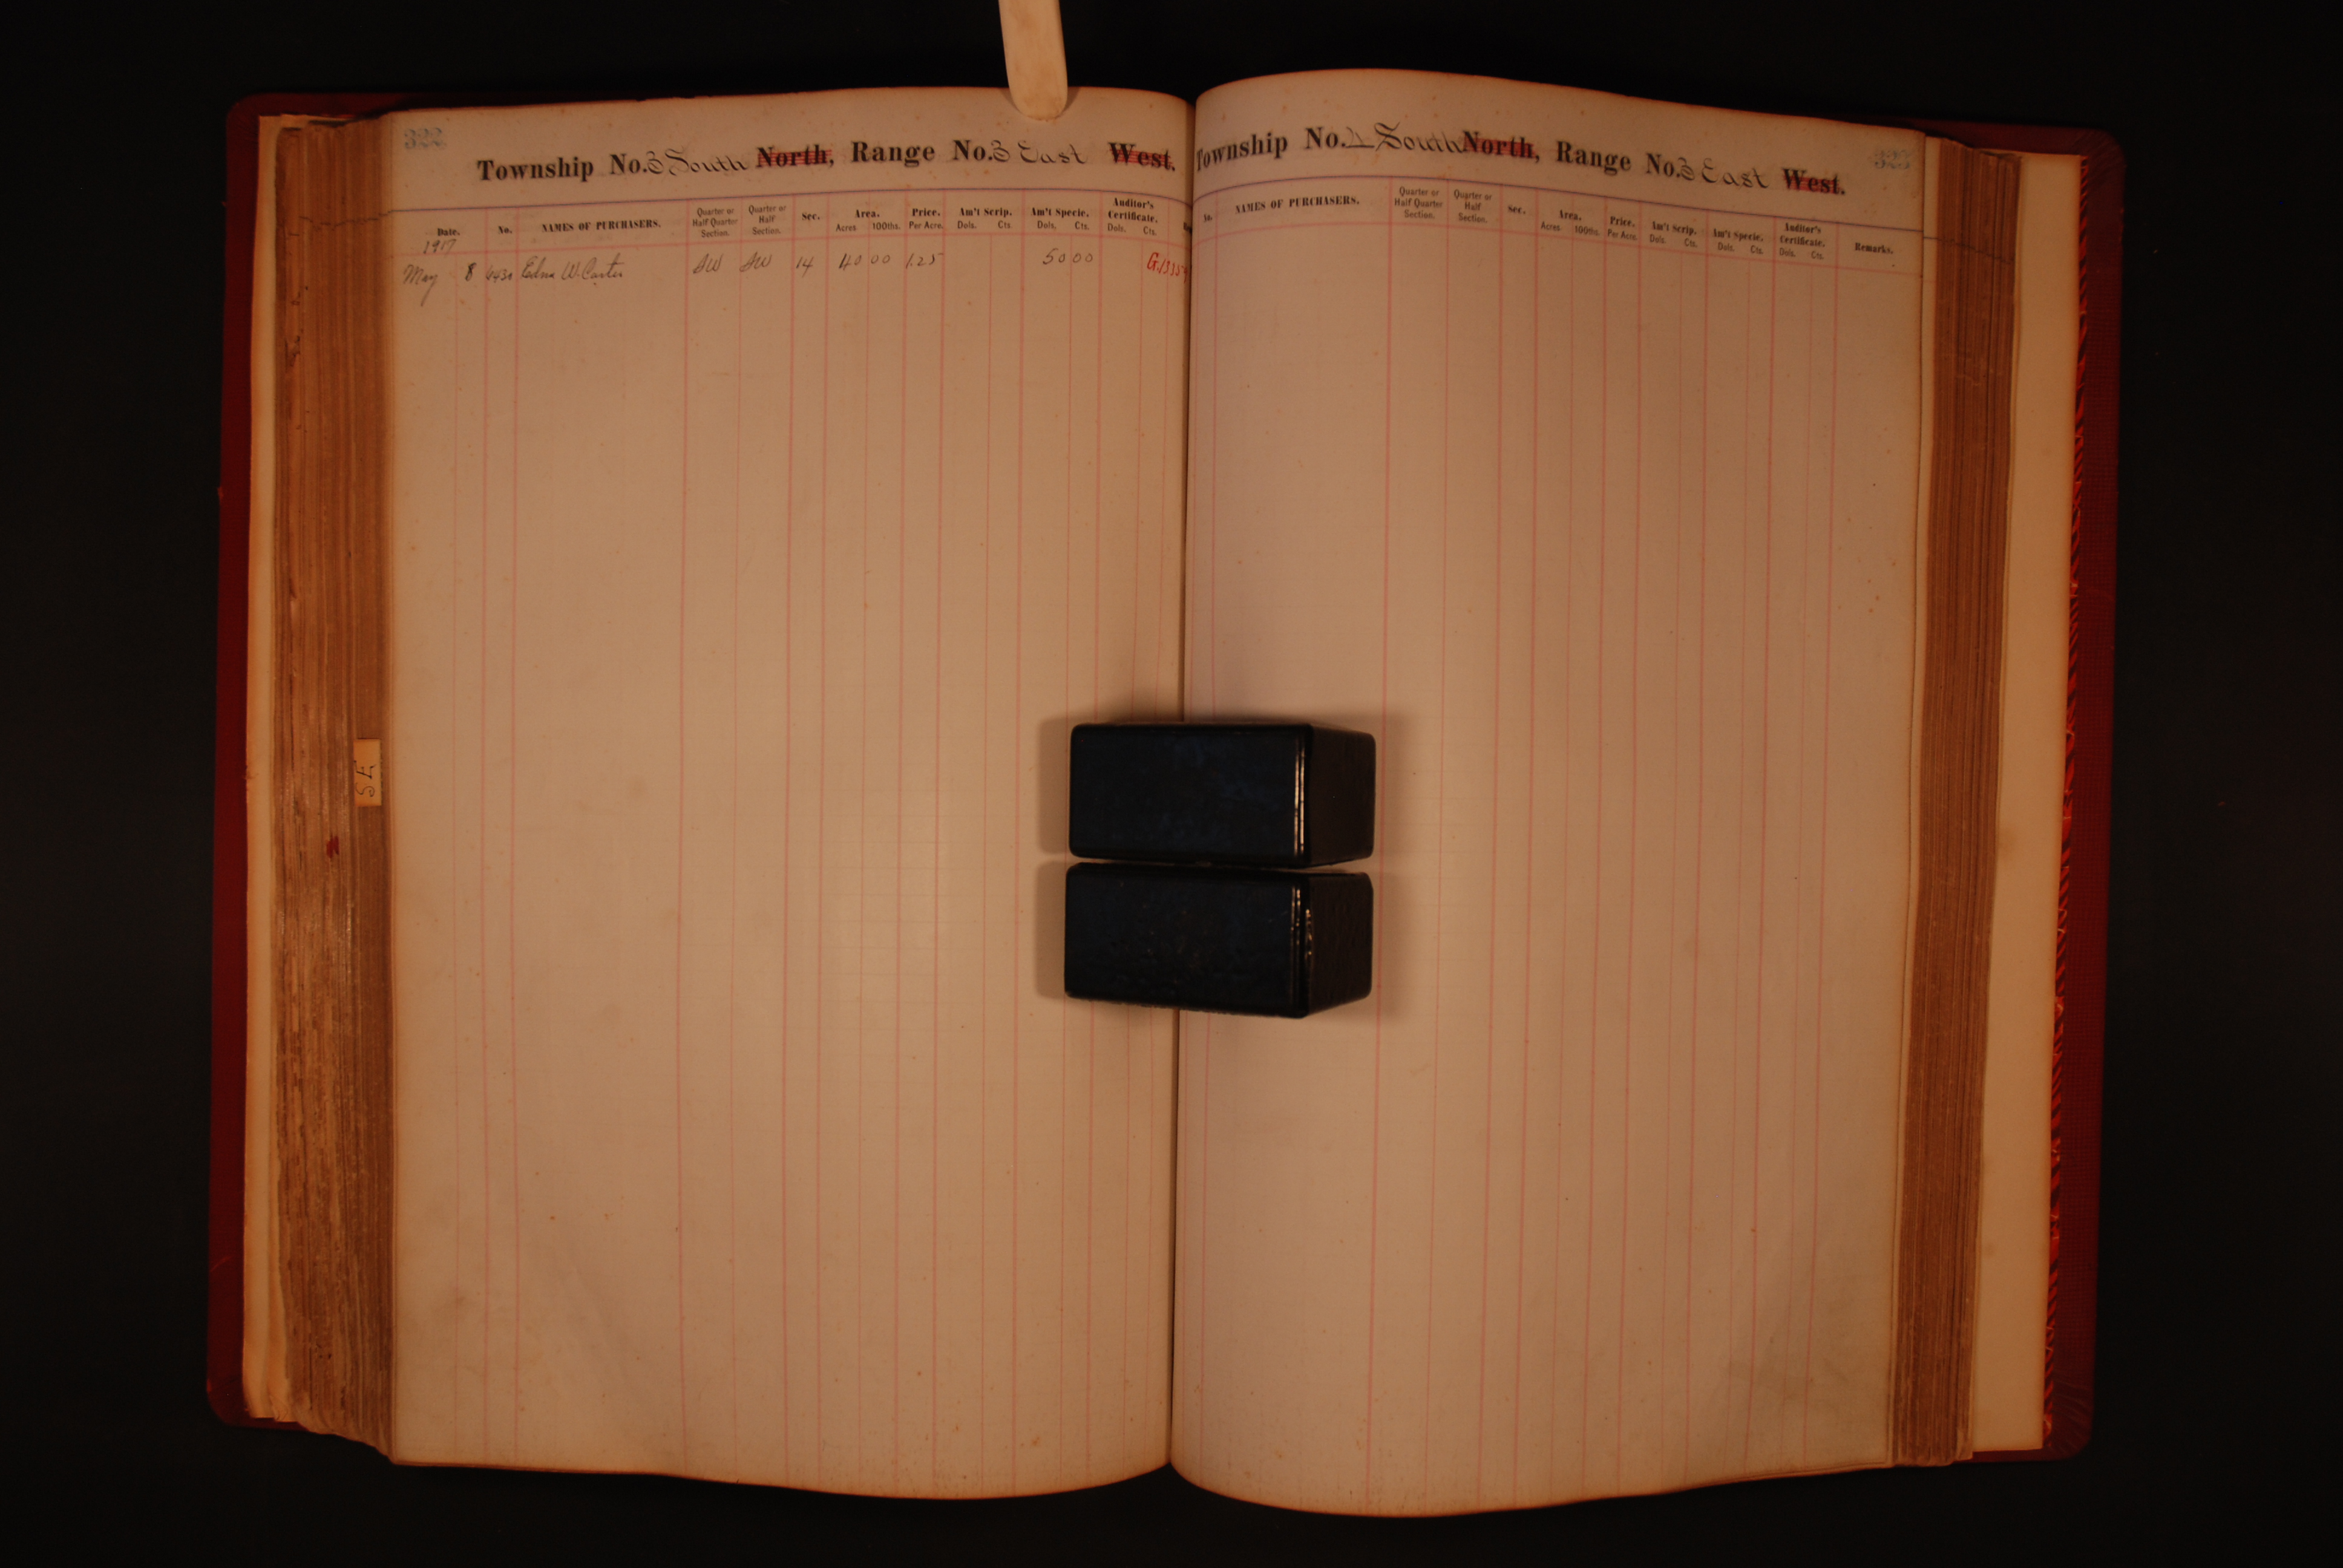 322
Township No. 3 South North, Range No. 3 East West.
Date. No. NAMES OF PURCHASERS. Quarter or Half Quarter Section. Quarter or Half Section. Sec. Area. Acres 100ths. Price. Per Acre. Am't Scrip. Dols. Cts Am't Specie. Dols. Cts. Auditor's Certificate. Dols. Cts.
1917
May 8 Edna W. Carter SW SW 14 40 00 1.25 50 00
323
Township No. 4 South North, Range No. 3 East West.
No. NAMES OF PURCHASERS. Quarter or Half Quarter Section. Quarter or Half Section. Sec. Area. Acres 100ths. Price. Per Acre. Am't Scrip. Dols. Cts. Am't Specie. Dols. Cts. Auditor's Certificate. Dols. Cts. Remarks.
SE